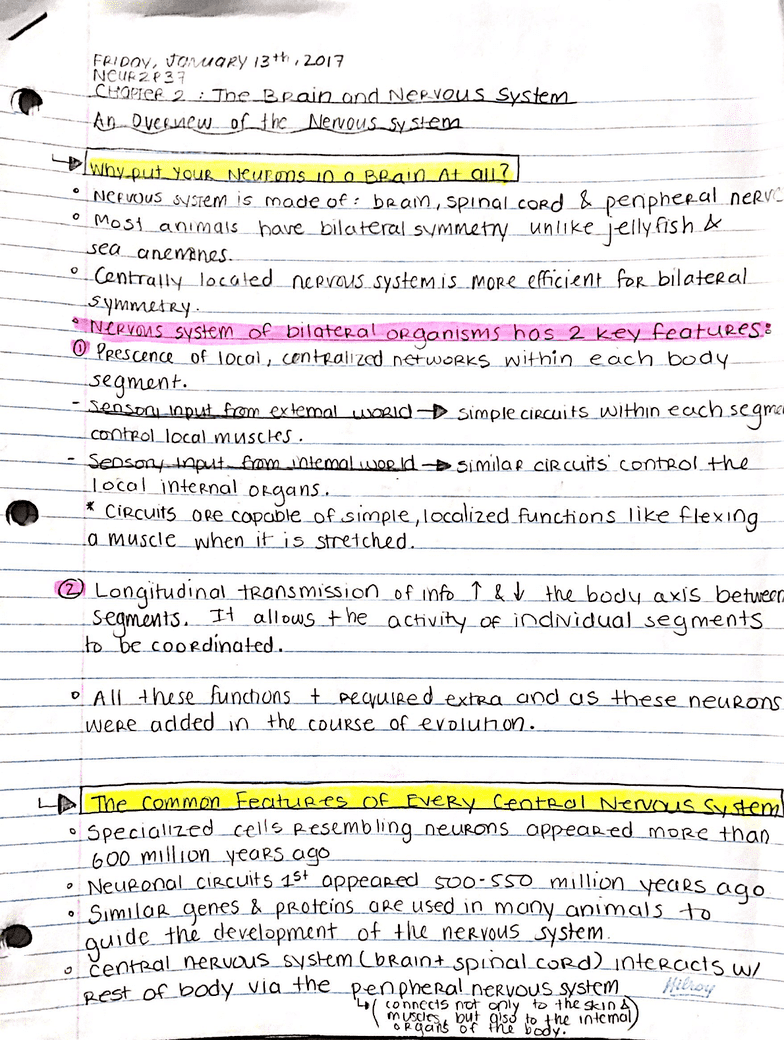 FRIDAY, JANUARY 13th, 2017
NEUR2P37
CHAPTER 2 : The Brain and Nervous System
An Overview of the Nervous system
Why put your Neurons in a Brain At all?
° Nervous system is made of: brain, spinal cord & peripheral nerv
° Most animals have bilateral symmetry unlike jellyfish &
sea anemnes.
° Centrally located nervous system is more efficient for bilateral
symmetry.
° Nervous system of bilateral organisms has 2 key features:
① Prescence of local, centralized networks within each body
segment.
- Sensory input from external world → simple circuits within each segme
control local muscles.
- Sensory input from internal world → similar circuits control the
local internal organs.
* Circuits are capable of simple, localized functions like flexing
a muscle when it is stretched.
② Longitudinal transmission of info ↑ & ↓ the body axis between
segments. It allows the activity of individual segments
to be coordinated.
° All these functions + required extra and as these neurons
were added in the course of evolution.
The Common Features of Every Central Nervous System
° Specialized cells resembling neurons appeared more than
600 million years ago
° Neuronal circuits 1st appeared 500-550 million years ago
° Similar genes & proteins are used in many animals to
guide the development of the nervous system.
° Central nervous system (brain + spinal cord) interacts w/
rest of body via the peripheral nervous system
Hilroy
↳ (connects not only to the skin &
muscles, but also to the internal
organs of the body.)